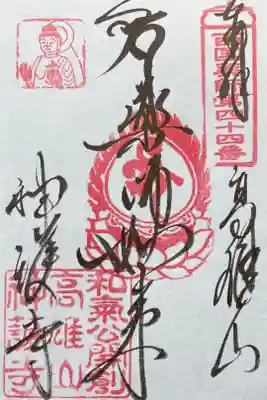 奉拝
西国薬師第四十四番
高雄山
薬師如来
神護寺
和氣公創
高雄山
神護寺